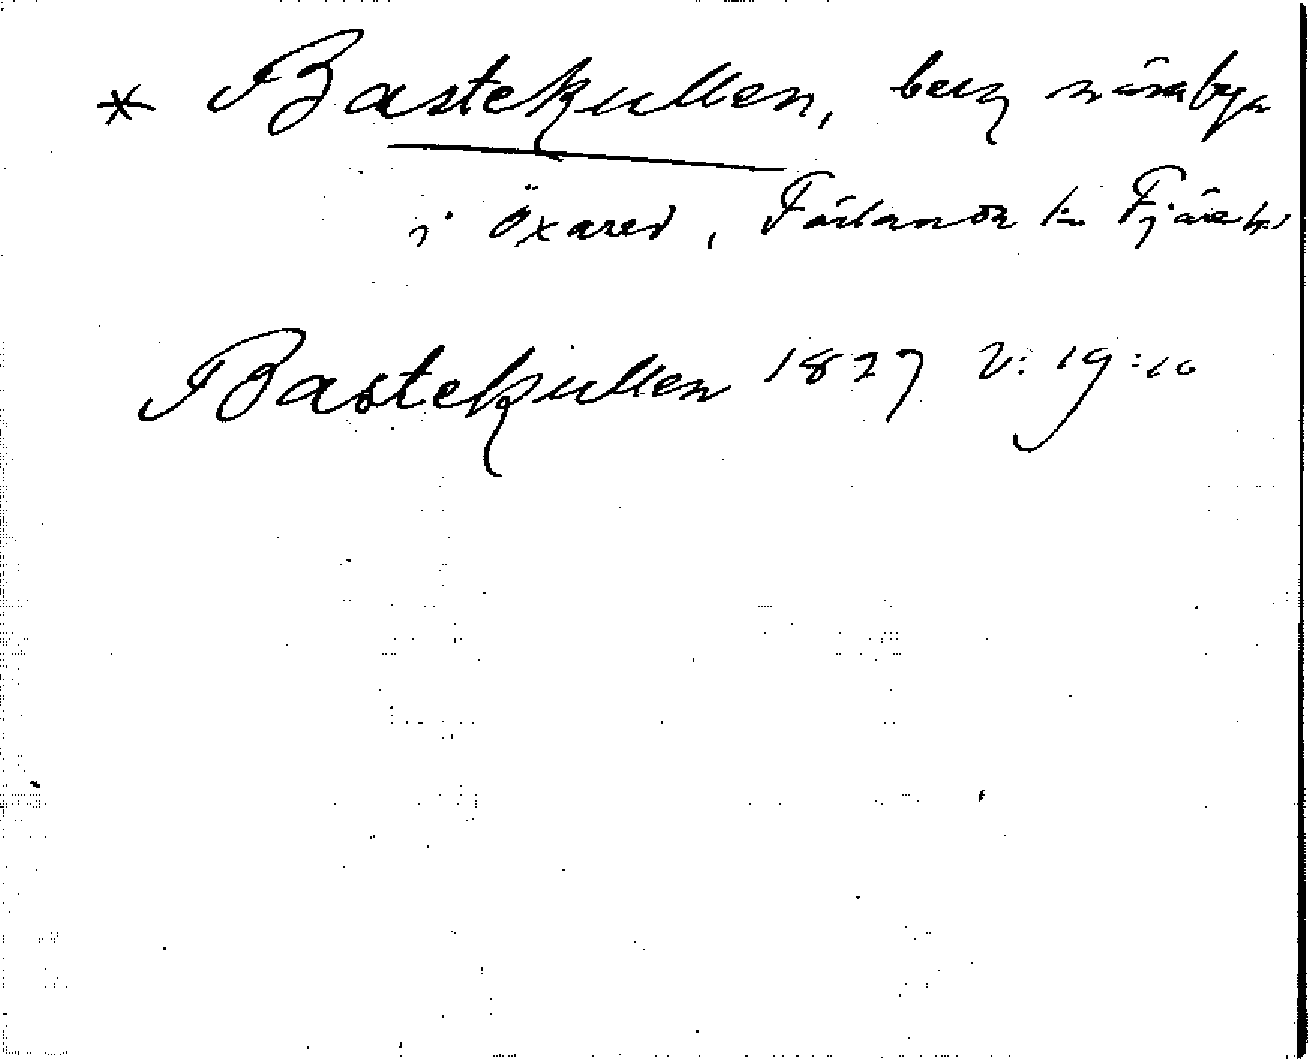 * Bastekullen, berg nära byn
i Öxared, Förlanda sn Fjäre hd
Bastekullen 1827 V: 19:10